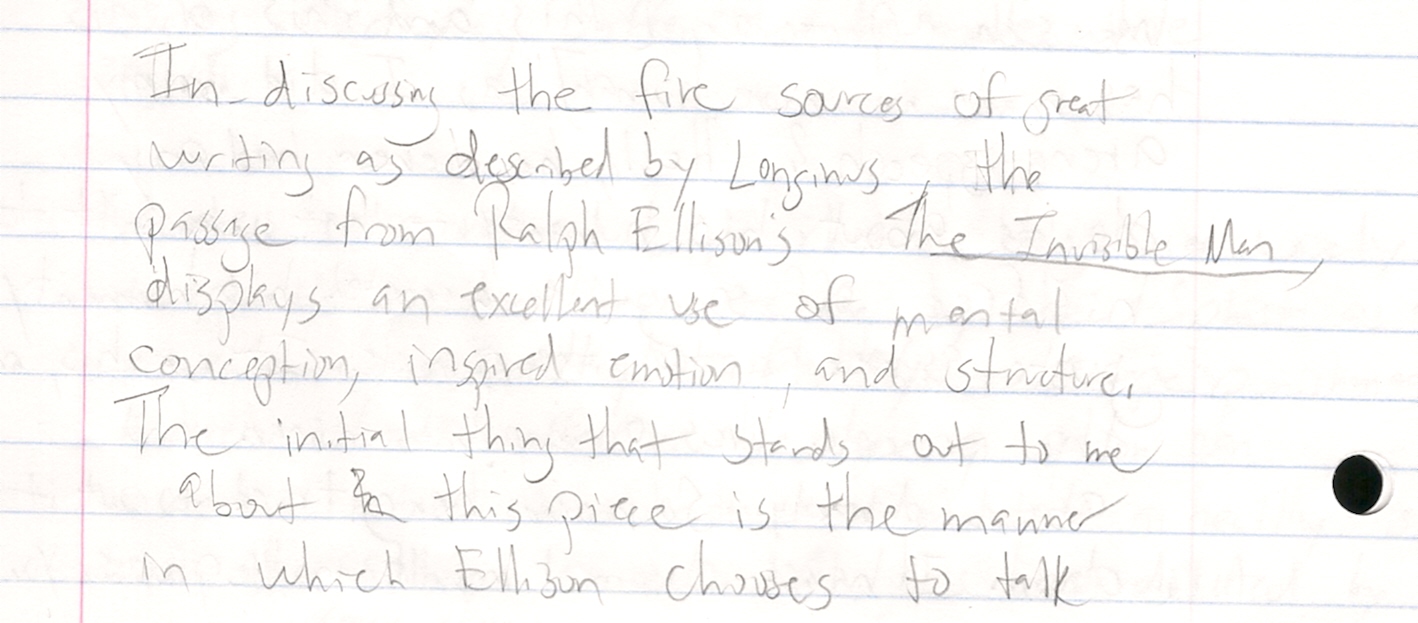 In discussing the five sources of great
writing as described by Longinus, the
passage from Ralph Ellison's The Invisible Man,
displays an excellent use of mental
conception, inspired emotion, and structure.
The initial thing that stands out to me
about this piece is the manner
in which Ellison chooses to talk